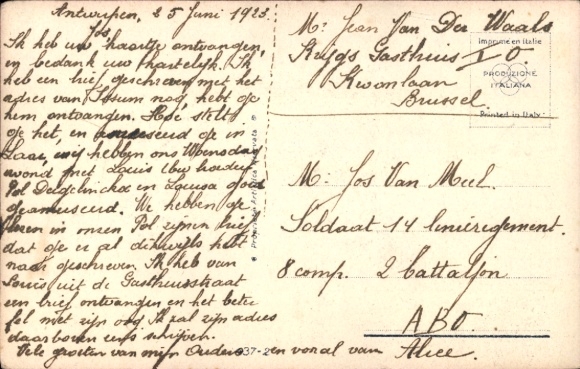 Antwerpen, 25 Juni 1923.
Jos
Ik heb uw kaartje ontvangen,
en bedank uw hartelijk. Ik
heb een brief geschreven met het
adres van nog, hebt ge
hem ontvangen. Hoe stelt
ge het, en ge in
wij hebben ons Woensdag
avond met Louis Uw broeder
Pol in Louisa goed
geamuseerd. We hebben ge
lezen in zijnen brief
dat ge er al dikwijls hebt
naar geschreven. Ik heb van
Louis uit de Gasthuisstraat
een brief ontvangen en het betre
fel met zijn oog Ik zal zijn adres
daarboven eens schrijven.
Vele groeten van mijn Ouders en vooral van Alice.
Produzione Artistica Riservata
937-2
Mr. Jean Van Der Waals
Krijgs Gasthuis V.O.
Kroonlaan
Brussel.
Imprimé en Italie
PRODUZIONE
ITALIANA
Printed in Italy
Mr. Jos Van Meel.
Soldaat 14 linieregement.
8 comp. 2 battaljon
ABO.